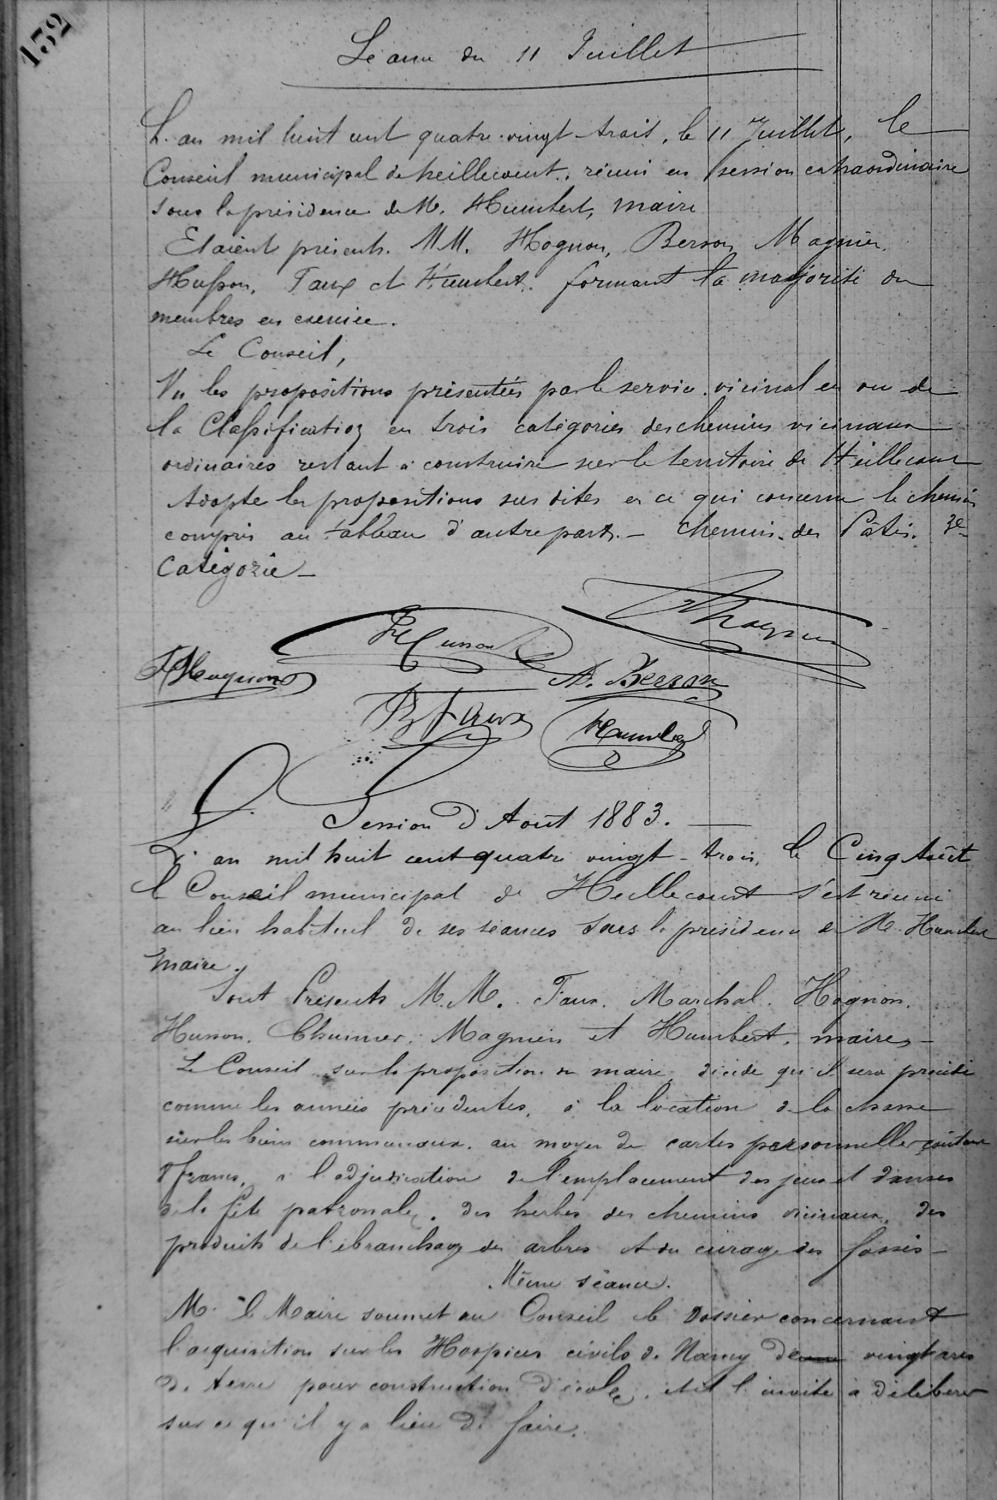 132
Séance du 11 Juillet
L'an mil huit cent quatre-vingt-trois, le 11 Juillet, le
Conseil municipal de Heillecourt, réuni en session extraordinaire
sous la présidence de M. Humbert, maire
Etaient présents. MM. Hognon, Berson, Magnien,
Husson, Faux et Humbert. formant la majorité des
membres en exercice.
Le Conseil,
Vu les propositions présentées par le service vicinal en vue de
la Classification en trois catégories des chemins vicinaux
ordinaires restant à construire sur le territoire de Heillecourt
Adopte les propositions sus dites en ce qui concerne le chemin
compris au tableau d'autre part. — Chemin des Pâtis.
Catégorie —
Hognon
Husson
Magnien
A. Berson
Faux
Humbert
Session d'Aout 1883.
L'an mil huit cent quatre vingt-trois, le Cinq Août
le Conseil municipal de Heillecourt s'est réuni
au lieu habituel de ses séances sous la présidence de M. Humbert
maire.
Sont Présents M.M. Faux. Marchal. Hognon.
Husson. Magnien et Humbert, maire —
Le Conseil sur la proposition du maire décide qu'il sera procédé
comme les années précédentes, à la location de la chasse
sur les biens communaux, au moyen de cartes personnelles
francs, à l'adjudication de l'emplacement des jeux et danses
de la fête patronale, des herbes des chemins vicinaux, des
produits de l'ébranchage des arbres et du curage des fossés —
Même séance.
M. le Maire soumet au Conseil le dossier concernant
l'acquisition sur les Hospices civils de Nancy de vingt ares
de terre pour construction d'école, et il l'invite à délibérer
sur ce qu'il y a lieu de faire.